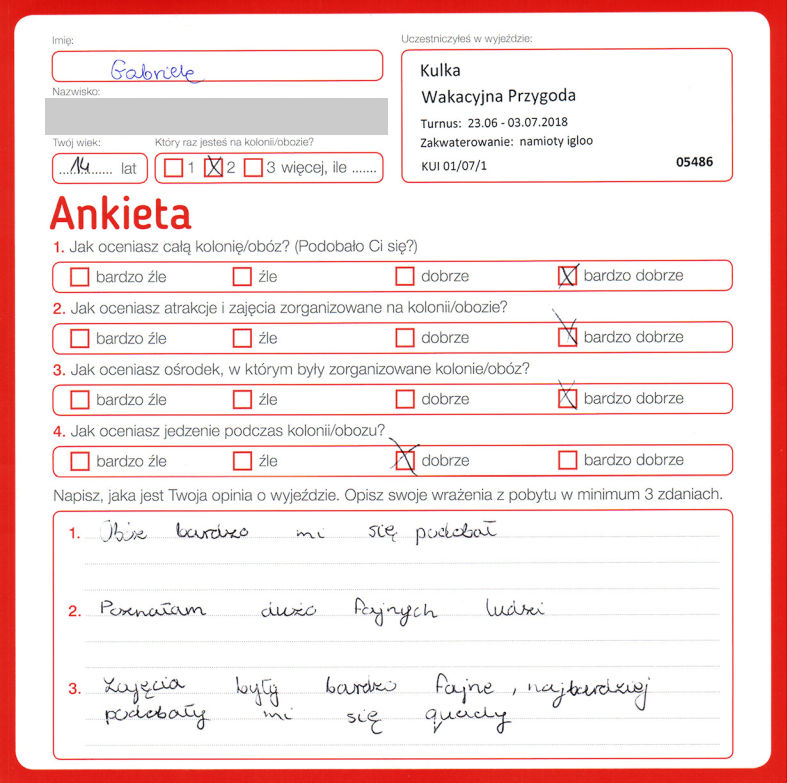 Imię:
Gabriela
Nazwisko:
Twój wiek:
14 lat
Który raz jesteś na kolonii/obozie?
1 X 2 3 więcej, ile .......
Uczestniczyłeś w wyjeździe:
Kulka
Wakacyjna Przygoda
Turnus: 23.06 - 03.07.2018
Zakwaterowanie: namioty igloo
KUI 01/07/1 05486
Ankieta
1. Jak oceniasz całą kolonię/obóz? (Podobało Ci się?)
bardzo źle źle dobrze X bardzo dobrze
2. Jak oceniasz atrakcje i zajęcia zorganizowane na kolonii/obozie?
bardzo źle źle dobrze X bardzo dobrze
3. Jak oceniasz ośrodek, w którym były zorganizowane kolonie/obóz?
bardzo źle źle dobrze X bardzo dobrze
4. Jak oceniasz jedzenie podczas kolonii/obozu?
bardzo źle źle X dobrze bardzo dobrze
Napisz, jaka jest Twoja opinia o wyjeździe. Opisz swoje wrażenia z pobytu w minimum 3 zdaniach.
1. Obóz bardzo mi się podobał
2. Poznałam dużo fajnych ludzi
3. Zajęcia były bardzo fajne, najbardziej
podobały mi się quady